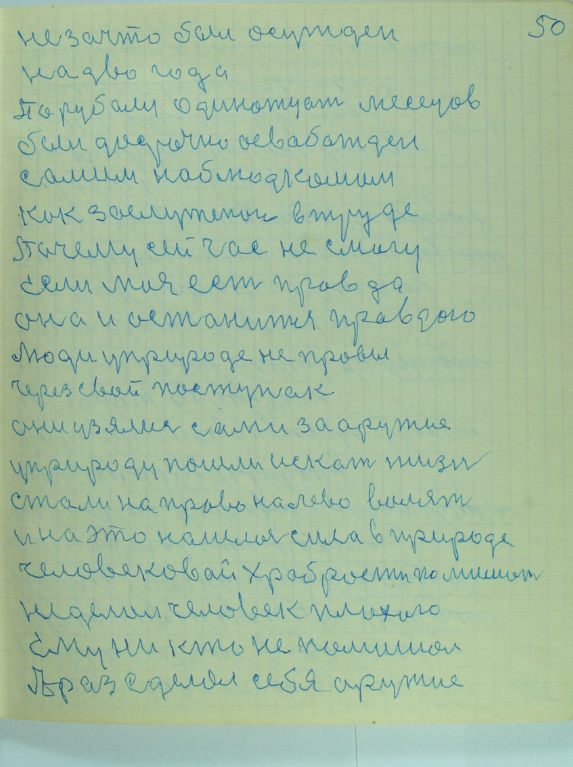 50
не за што бал осужден
на дво года
Парубали одинатцат месецов
бали досрочно освабажден
самим наблюдкомам
как заслужоном в труде
Почему сей час не смагу
Если моя ест правда
она и останится правдаю
Люди у природе не правы
через свой поступак
они узялис сами за аружие
у природу пошли искат жизн
стали на право на лево волят
и на это нашлас сила в природе
человековай храбрости памишат
не делал человек плохого
Ему ни кто не памишал
А раз сделал себя аружие